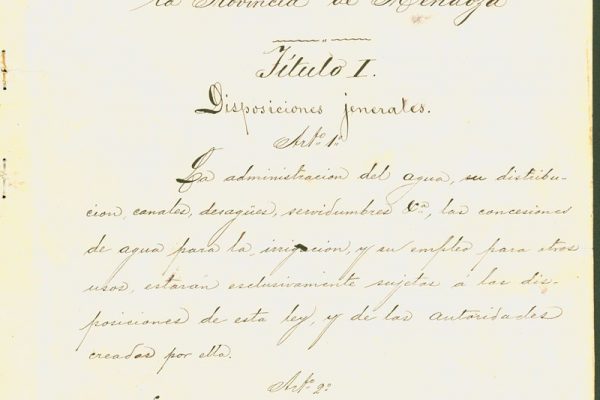 la Provincia de Mendoza
Título I.
Disposiciones jenerales.
Arto. 1o
La administracion del agua, su distribu-
cion, canales, desagües, servidumbres &a, las concesiones
de agua para la irrigacion, y su empleo para otros
usos, estarán esclusivamente sujetos a las dis-
posiciones de esta ley, y de las autoridades
creadas por ella.
Arto. 2o